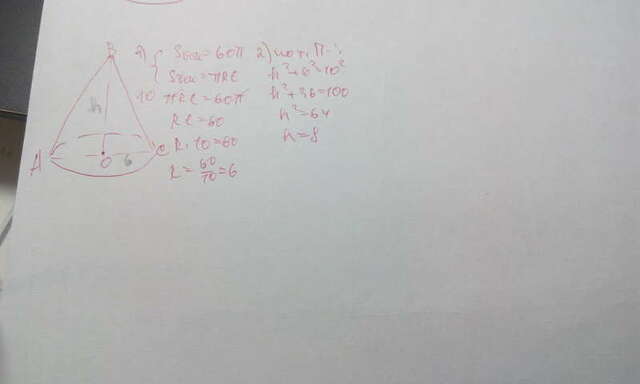 B
h
10
A
O
6
C
1) { Sбок = 60π
Sбок = πRL
πRL = 60π
RL = 60
R · 10 = 60
R = 60/10 = 6
2) по т. П-:
h² + 6² = 10²
h² + 36 = 100
h² = 64
h = 8